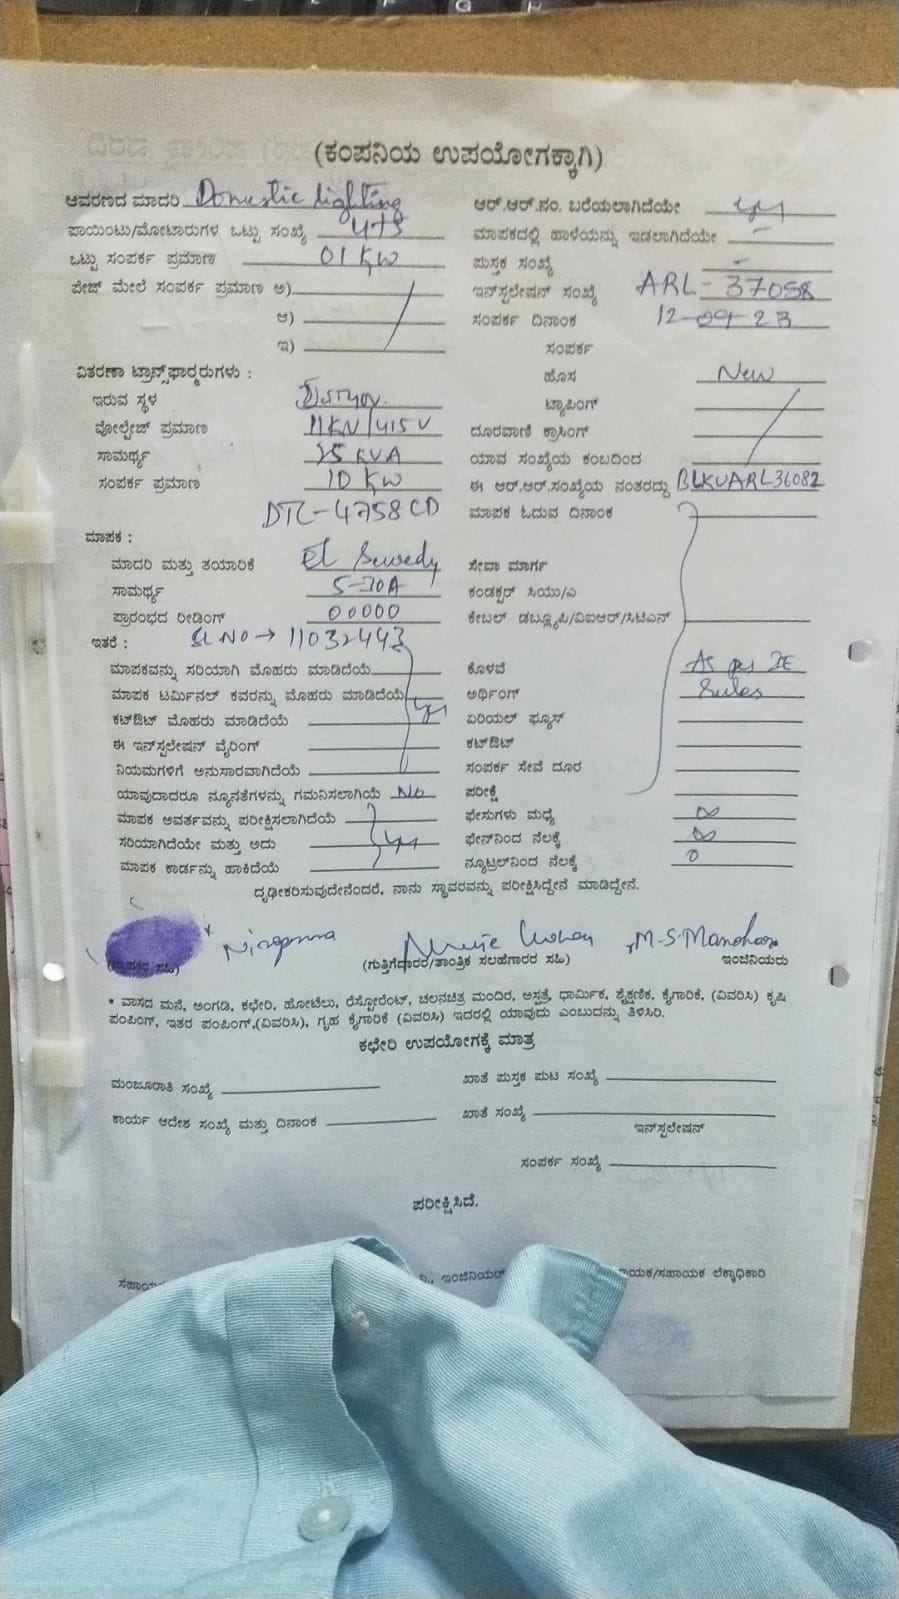 (ಕಂಪನಿಯ ಉಪಯೋಗಕ್ಕಾಗಿ)
ಆವರಣದ ಮಾದರಿ Domestic lighting
ಪಾಯಿಂಟು/ಮೋಟಾರುಗಳ ಒಟ್ಟು ಸಂಖ್ಯೆ 4+5
ಒಟ್ಟು ಸಂಪರ್ಕ ಪ್ರಮಾಣ 01 KW
ಪೇಜ್ ಮೇಲೆ ಸಂಪರ್ಕ ಪ್ರಮಾಣ ಅ)
ಆ)
ಇ)
ವಿತರಣಾ ಟ್ರಾನ್ಸ್‌ಫಾರ್ಮರುಗಳು :
ಇರುವ ಸ್ಥಳ
ವೋಲ್ಟೇಜ್ ಪ್ರಮಾಣ 11KV/415V
ಸಾಮರ್ಥ್ಯ 25 KVA
ಸಂಪರ್ಕ ಪ್ರಮಾಣ 10 KW
DTC-4758CD
ಮಾಪಕ :
ಮಾದರಿ ಮತ್ತು ತಯಾರಿಕೆ El Sewedy
ಸಾಮರ್ಥ್ಯ 5-30A
ಪ್ರಾರಂಭದ ರೀಡಿಂಗ್ 00000
ಇತರೆ : SL NO → 11032443
ಮಾಪಕವನ್ನು ಸರಿಯಾಗಿ ಮೊಹರು ಮಾಡಿದೆಯೆ
ಮಾಪಕ ಟರ್ಮಿನಲ್ ಕವರನ್ನು ಮೊಹರು ಮಾಡಿದೆಯೆ yes
ಕಟ್‌ಔಟ್ ಮೊಹರು ಮಾಡಿದೆಯೆ
ಈ ಇನ್‌ಸ್ಟಲೇಷನ್ ವೈರಿಂಗ್
ನಿಯಮಗಳಿಗೆ ಅನುಸಾರವಾಗಿದೆಯೆ
ಯಾವುದಾದರೂ ನ್ಯೂನತೆಗಳನ್ನು ಗಮನಿಸಲಾಗಿಯೆ No
ಮಾಪಕ ಅವರ್ತವನ್ನು ಪರೀಕ್ಷಿಸಲಾಗಿದೆಯೆ
ಸರಿಯಾಗಿದೆಯೇ ಮತ್ತು ಅದು yes
ಮಾಪಕ ಕಾರ್ಡನ್ನು ಹಾಕಿದೆಯೆ
ಆರ್.ಆರ್.ನಂ. ಬರೆಯಲಾಗಿದೆಯೇ yes
ಮಾಪಕದಲ್ಲಿ ಹಾಳೆಯನ್ನು ಇಡಲಾಗಿದೆಯೇ -
ಪುಸ್ತಕ ಸಂಖ್ಯೆ -
ಇನ್‌ಸ್ಟಲೇಷನ್ ಸಂಖ್ಯೆ ARL-37058
ಸಂಪರ್ಕ ದಿನಾಂಕ 12-09-23
ಸಂಪರ್ಕ
ಹೊಸ New
ಟ್ಯಾಪಿಂಗ್
ದೂರವಾಣಿ ಕ್ರಾಸಿಂಗ್
ಯಾವ ಸಂಖ್ಯೆಯ ಕಂಬದಿಂದ
ಈ ಆರ್.ಆರ್.ಸಂಖ್ಯೆಯ ನಂತರದ್ದು BLKUARL36082
ಮಾಪಕ ಓದುವ ದಿನಾಂಕ
ಸೇವಾ ಮಾರ್ಗ
ಕಂಡಕ್ಟರ್ ಸಿಯು/ಎ
ಕೇಬಲ್ ಡಬ್ಲ್ಯೂಪಿ/ವಿಐಆರ್/ಸಿಟಿಎನ್
ಕೊಳವೆ As per IE
ಅರ್ಥಿಂಗ್ Rules
ಏರಿಯಲ್ ಫ್ಯೂಸ್
ಕಟ್‌ಔಟ್
ಸಂಪರ್ಕ ಸೇವೆ ದೂರ
ಪರೀಕ್ಷೆ
ಫೇಸುಗಳು ಮಧ್ಯೆ ∞
ಫೇಸ್‌ನಿಂದ ನೆಲಕ್ಕೆ ∞
ನ್ಯೂಟ್ರಲ್‌ನಿಂದ ನೆಲಕ್ಕೆ 0
ದೃಢೀಕರಿಸುವುದೇನೆಂದರೆ, ನಾನು ಸ್ಥಾವರವನ್ನು ಪರೀಕ್ಷಿಸಿದ್ದೇನೆ ಮಾಡಿದ್ದೇನೆ.
M.S.Manohar
(ಗ್ರಾಹಕರ ಸಹಿ) (ಗುತ್ತಿಗೆದಾರರ/ತಾಂತ್ರಿಕ ಸಲಹೆಗಾರರ ಸಹಿ) ಇಂಜಿನಿಯರು
* ವಾಸದ ಮನೆ, ಅಂಗಡಿ, ಕಛೇರಿ, ಹೋಟೆಲು, ರೆಸ್ಟೋರೆಂಟ್, ಚಲನಚಿತ್ರ ಮಂದಿರ, ಆಸ್ಪತ್ರೆ, ಧಾರ್ಮಿಕ, ಶೈಕ್ಷಣಿಕ, ಕೈಗಾರಿಕೆ, (ವಿವರಿಸಿ) ಕೃಷಿ
ಪಂಪಿಂಗ್, ಇತರ ಪಂಪಿಂಗ್,(ವಿವರಿಸಿ), ಗೃಹ ಕೈಗಾರಿಕೆ (ವಿವರಿಸಿ) ಇದರಲ್ಲಿ ಯಾವುದು ಎಂಬುದನ್ನು ತಿಳಿಸಿರಿ.
ಕಛೇರಿ ಉಪಯೋಗಕ್ಕೆ ಮಾತ್ರ
ಮಂಜೂರಾತಿ ಸಂಖ್ಯೆ
ಖಾತೆ ಪುಸ್ತಕ ಪುಟ ಸಂಖ್ಯೆ
ಕಾರ್ಯ ಆದೇಶ ಸಂಖ್ಯೆ ಮತ್ತು ದಿನಾಂಕ
ಖಾತೆ ಸಂಖ್ಯೆ
ಇನ್‌ಸ್ಟಲೇಷನ್
ಸಂಪರ್ಕ ಸಂಖ್ಯೆ
ಪರೀಕ್ಷಿಸಿದೆ.
ಇಂಜಿನಿಯರ್ ಸಹಾಯಕ ಲೆಕ್ಕಾಧಿಕಾರಿ